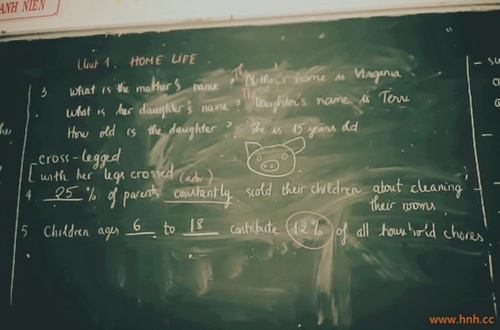 ANH NIEN
Unit 1: HOME LIFE
3. What is the mother's name? The Mother's name is Virginia
What is her daughter's name? The Daughter's name is Terri
How old is the daughter? She is 15 years old
cross-legged
with her legs crossed (adv.)
4. 25 % of parents constantly scold their children about cleaning
their rooms
5. Children ages 6 to 18 contribute 12% of all household chores
www.hnh.cc